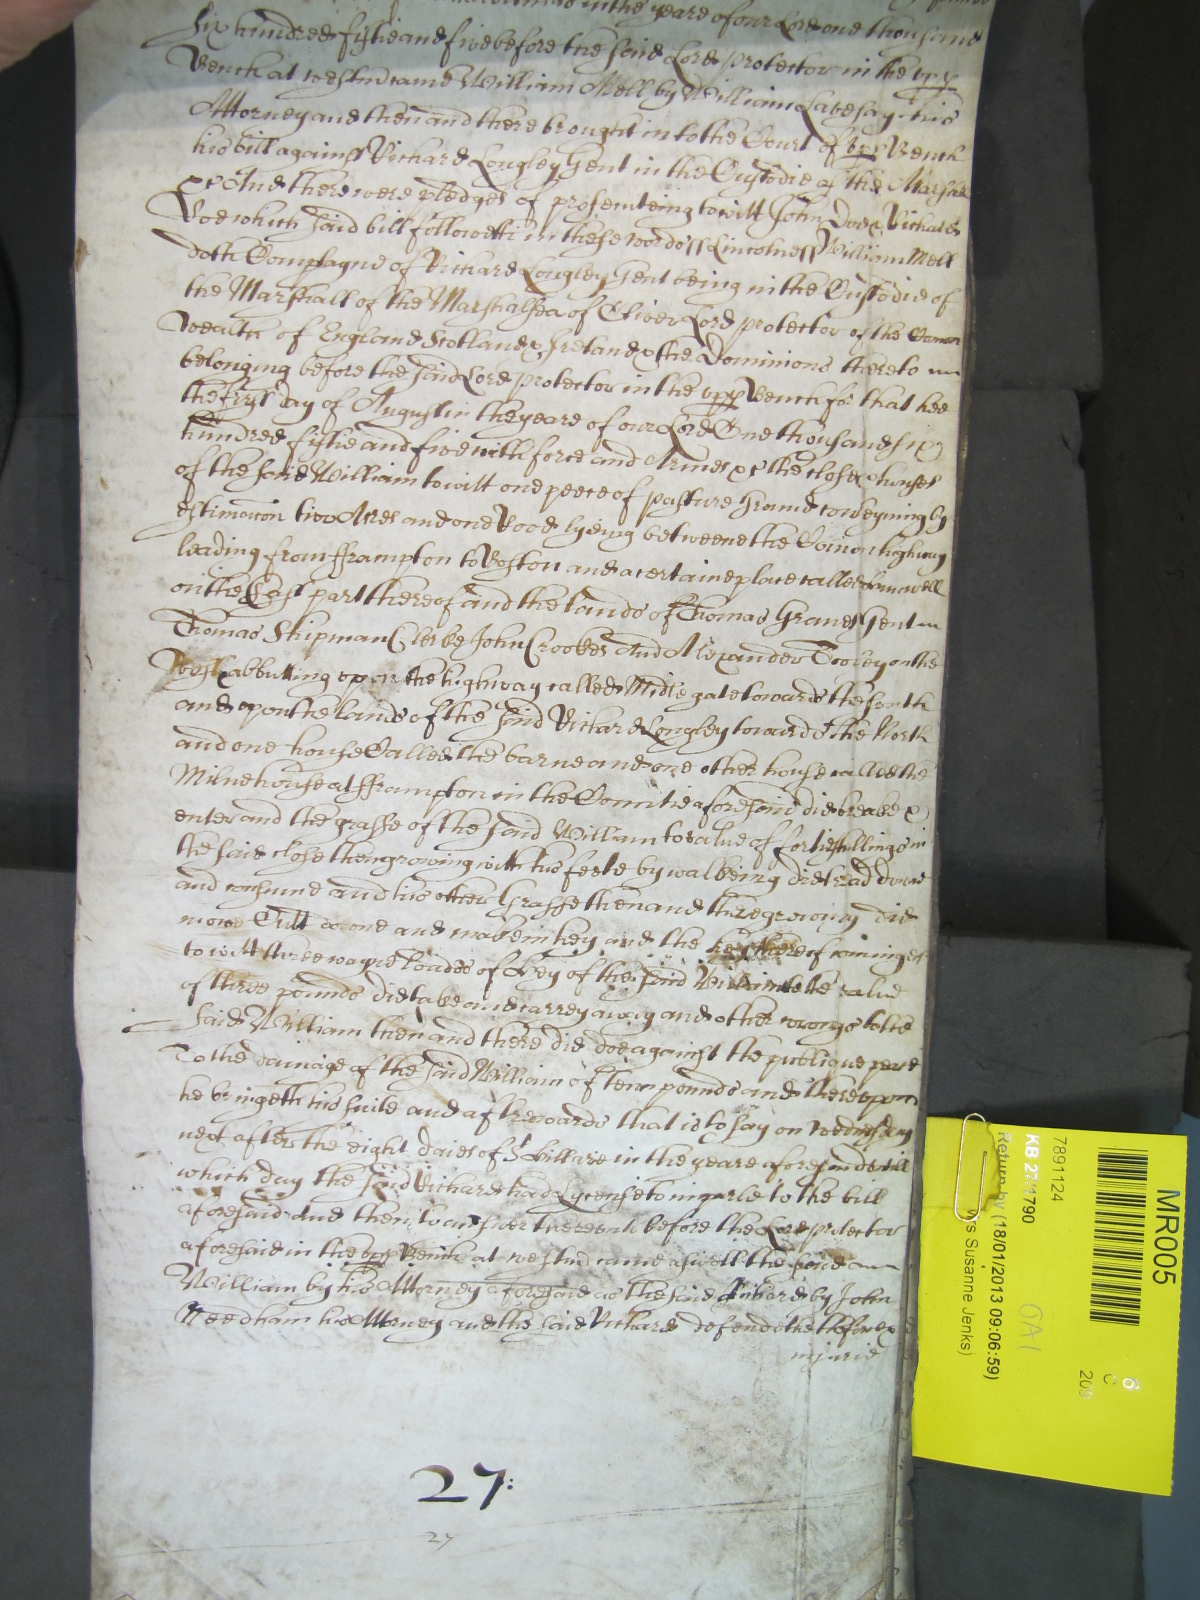 in the yeare of our Lord one thousand
Six hundred fyftie and five before the said Lord Protector in the upp
Bench at Westm came William Mell by William his
Attorney and then and there brought into the Court of upp Bench
his bill against Richard Longley Gent in the Custodie of the Marshall
&c And there were pledges of prosecuteing to witt John Doe & Richard
Roe which said bill followeth in these words ss Lincolne ss William Mell
doth Complayne of Richard Longley Gent being in the Custodie of
the Marshall of the Marshalsea of Oliver Lord protector of the Comon
Wealth of England Scotland & Ireland & the Dominions thereto
belonging before the said Lord protector in the upp Bench for that hee
the first day of August in the yeare of our Lord One thousand six
hundred fyftie and five with force and Armes &c the close & house
of the said William to witt one peece of pasture ground conteyning by
estimacon two Acres and one Rood lyeing betweene the Comon highway
leading from Frampton to Boston and a certaine place called
on the East part thereof and the lands of Thomas Graves Gent
Thomas Shipman Clerke John Crookes And Alexander Tooley on the
West abbutting upon the highway called Midle gate towards the south
and upon the lands of the said Richard Longley towards the North
and one house Called the barne and one other house called the
Milnehouse at Frampton in the Comitie aforesaid did breake &
enter and the grasse of the said William to value of fortie shillings in
the said close then growing with his feete by walkeing did tread downe
and consume and his other Grasse then and there groweing did
mowe Cutt downe and make in hey and the hey thereof comeinge
to witt three wayne loades of hey of the said William to the value
of three pounds did take and carrey away and other wrongs to the
said William then and there did doe against the publique peace
To the damage of the said William of tenn pounds and thereupon
he bringeth his suite and afterwards that is to say on Wednesday
next after the eight daies of St Hillarie in the yeare aforesaid untill
which day the said Richard had lycense to imparle to the bill
aforesaid and then to answer thereunto before the Lord protector
aforesaid in the upp Bench at Westm came aswell the said
William by his Attorney aforesaid as the said Richard by John
Needham his Attorney and the said Richard defendeth the force &
injurie
27:
27
MR005
7891124
KB 27/1790
Return by (18/01/2013 09:06:59)
s Susanne Jenks)
GA1
6
C